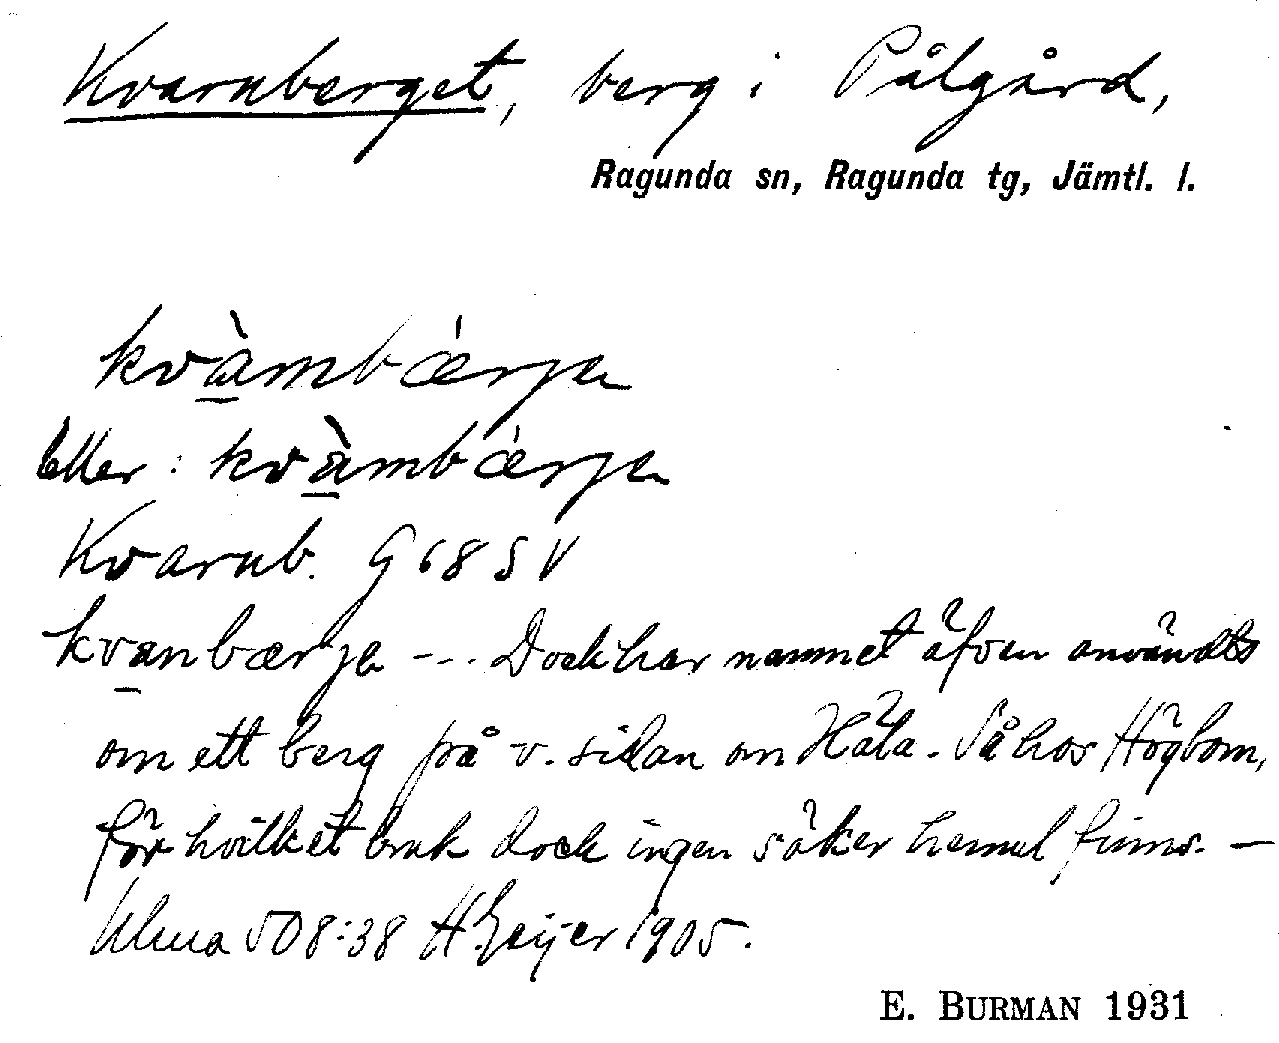 Kvarnberget, berg i Pålgård,
Ragunda sn, Ragunda tg, Jämtl. l.
kvàmbǽrjɐ
Eller: kvàmbǽrjɐ
Kvarnb. G 68 SV
kvanbærjɐ --. Dock har namnet äfven användts
om ett berg på v. sidan om Häla. Så hos Högbom,
för hvilket bruk dock ingen säker hemul finns. –
Ulma 508:38 H. Geijer 1905.
E. BURMAN 1931